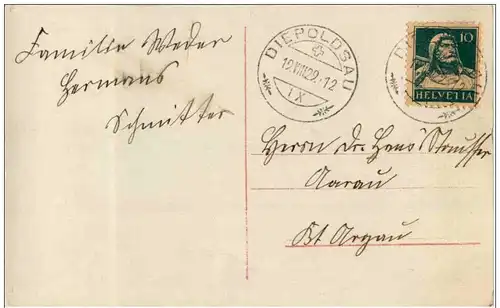 Familie Weder
Hermans
Schmitter
DIEPOLDSAU
12.VIII.29-12
IX
10
HELVETIA
Herrn Dr. Hans Strausser
Aarau
Kt Argau